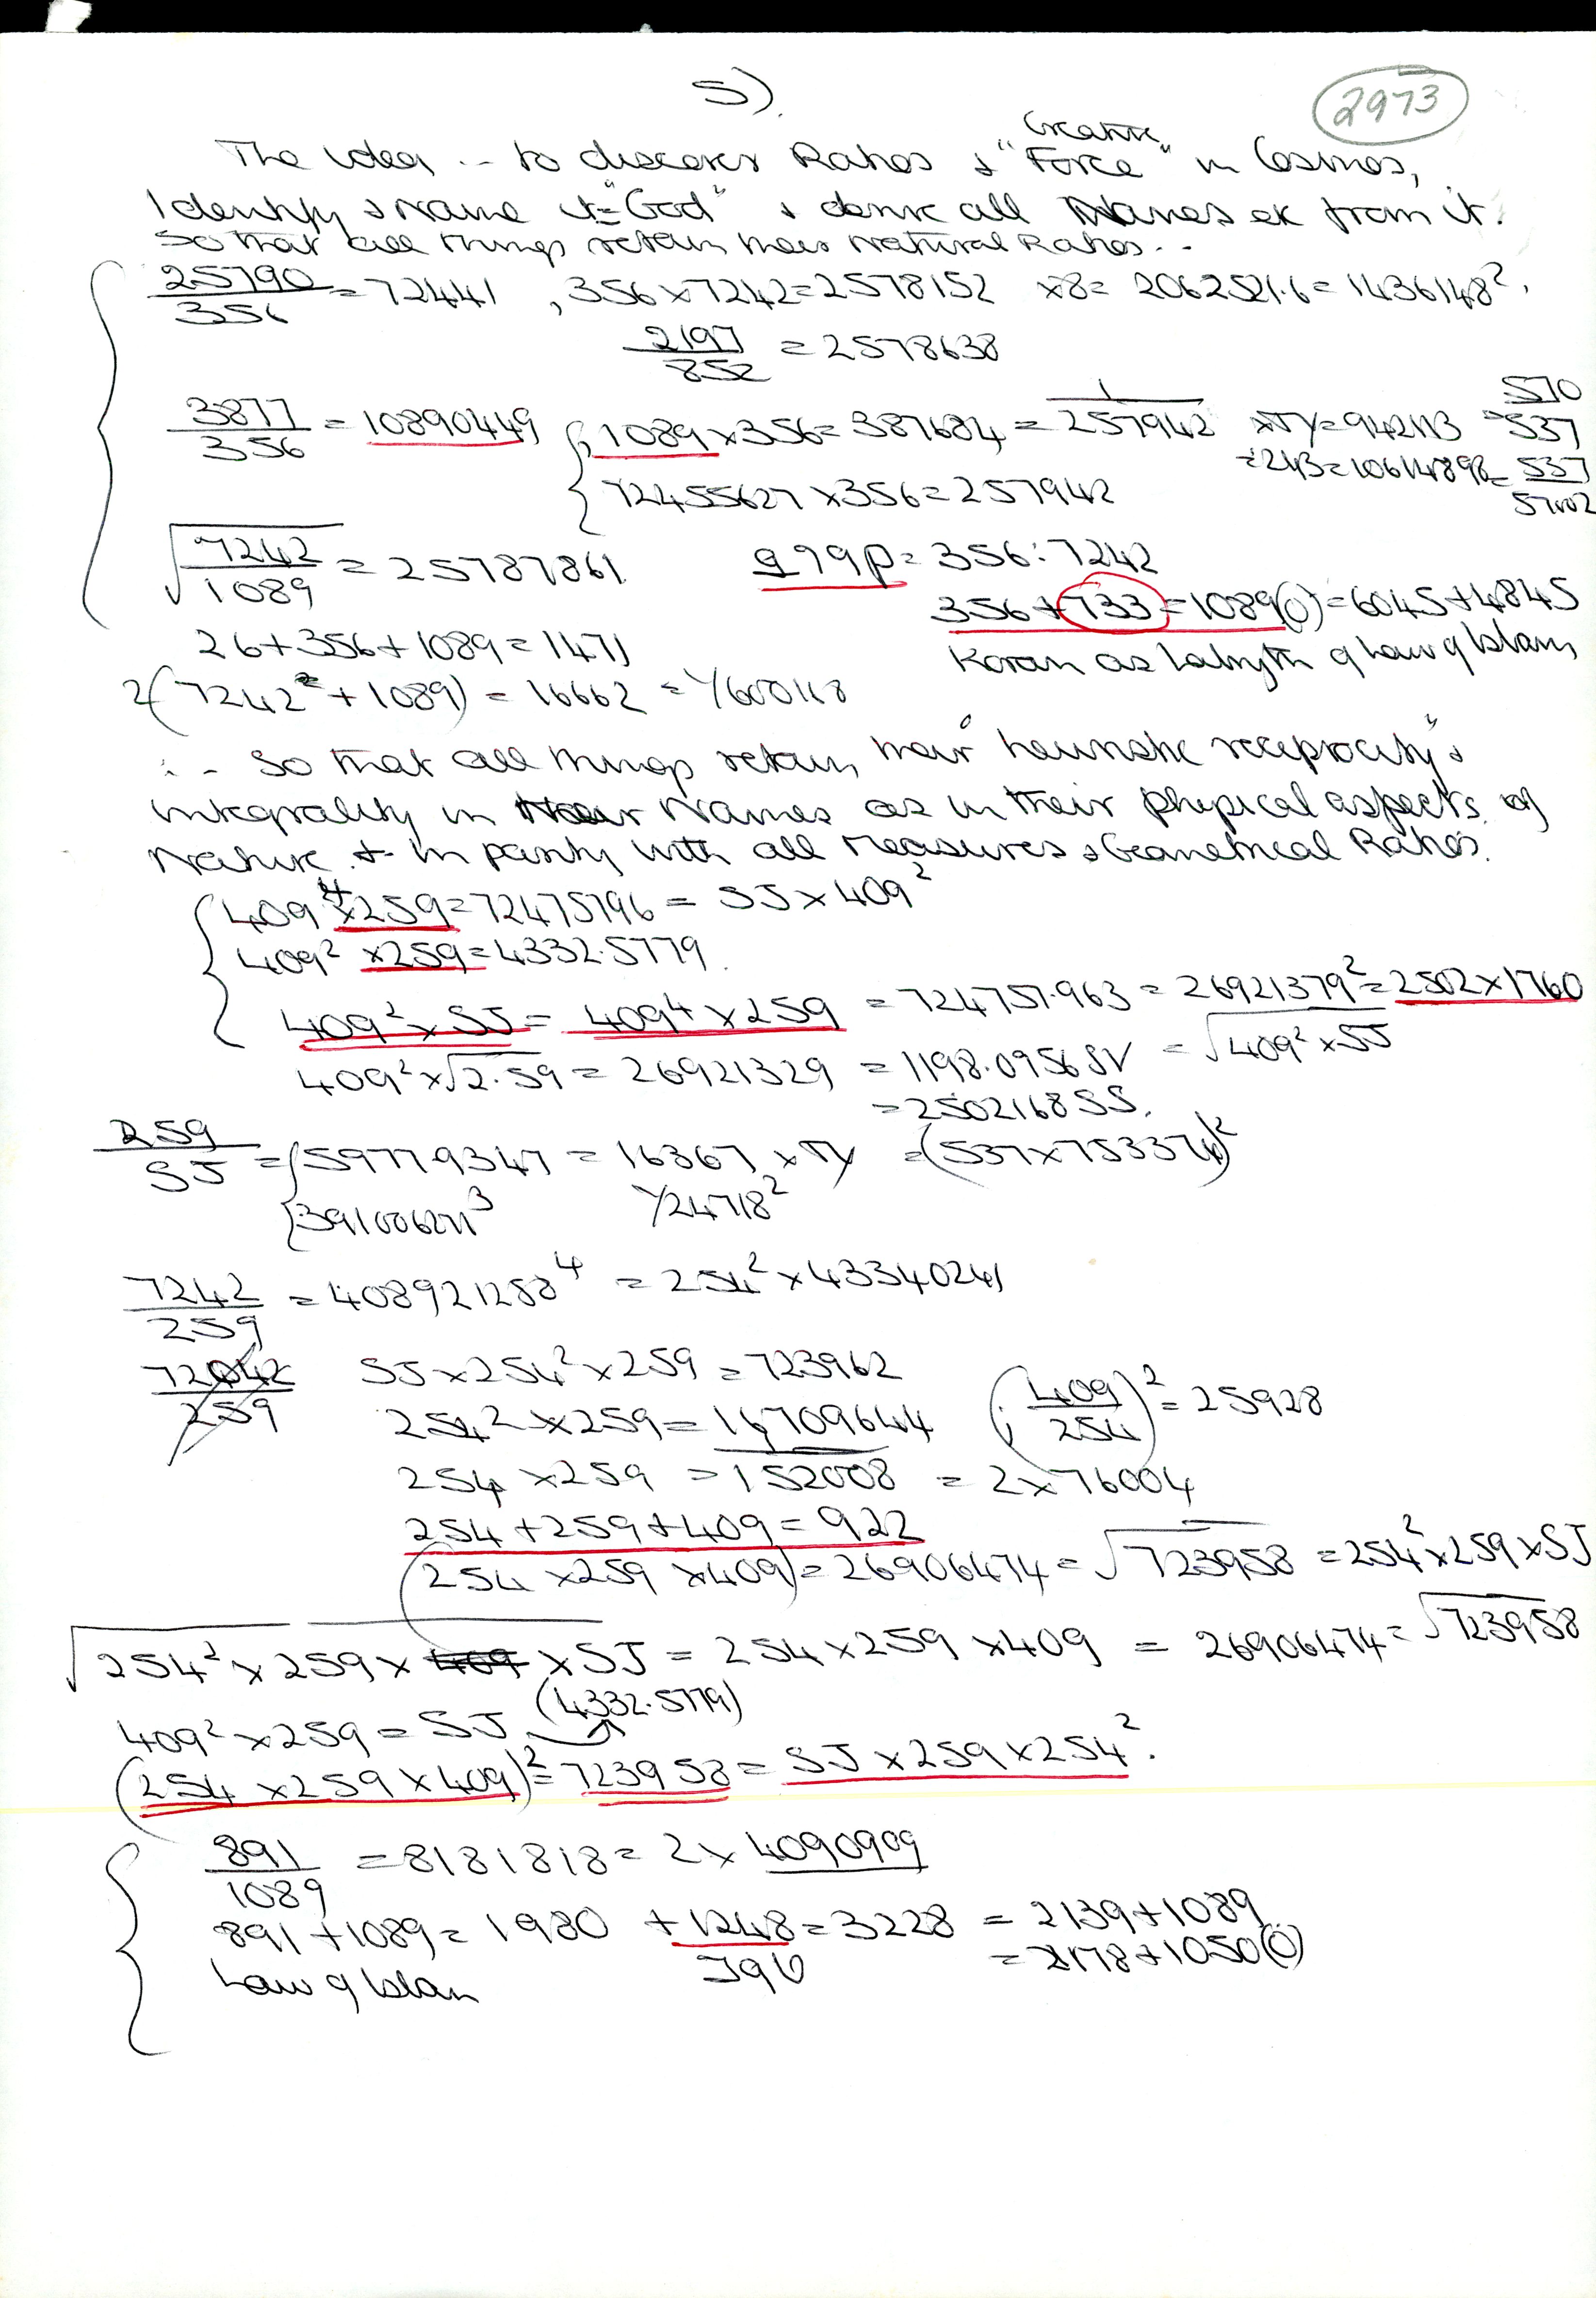 5)
2973
The idea -- to discover Ratios & "Creative Force" in Cosmos,
Identify & Name it = "God" & derive all Names ex from it.
So that all things retain their Natural Ratios --
25790/356 = 72441 , 356 × 7242 = 2578152 ×8 = 2062521.6 = 1436148²,
2197/852 = 2578638
3877/356 = 10890449 { 1089 × 356 = 387684 = 1/257942 = 942113 = 570/537
= 243 = 10614898 = 537/57002
72455627 × 356 = 257942
√7242/1089 = 25787861 = 356 : 7242
356 + 733 = 1089(0) = 6045 + 4845
26 + 356 + 1089 = 1471 Koran as Labyth of Law of Islam
2(7242 + 1089) = 16662 = 1/600118
: - So that all things retain their "heuristic reciprocity" &
integrality in their Names as in their physical aspects of
Nature & in parity with all Measures & Geometrical Ratios.
409⁴ × 259 = 72475796 = SJ × 409²
409² × 259 = 4332.5779
409² × SJ = 409⁴ × 259 = 724757.963 = 26921379² = 2502 × 1760
409² × √2.59 = 26921329 = 1198.0956 SV = √409² × SJ
= 2502168 SS.
259/SJ = { 59779347 = 16367 × = (537 × 753374)²
391006271³ 1/24718²
7242/259 = 408921288⁴ = 254² × 43340241
SJ × 254² × 259 = 723962
254² × 259 = 16709644 (409/254)² = 25928
254 × 259 = 152008 = 2 × 76004
254 + 259 + 409 = 922
(254 × 259 × 409) = 26906474 = √723958 = 254² × 259 × SJ
√254² × 259 × SJ = 254 × 259 × 409 = 26906474 = √723958
409² × 259 = SJ (4332.5779)
(254 × 259 × 409)² = 723958 = SJ × 259 × 254².
891/1089 = 8181818 = 2 × 4090909
891 + 1089 = 1980 + 1248 = 3228 = 2139 + 1089
Law of Islam = 2178 + 1050(0)